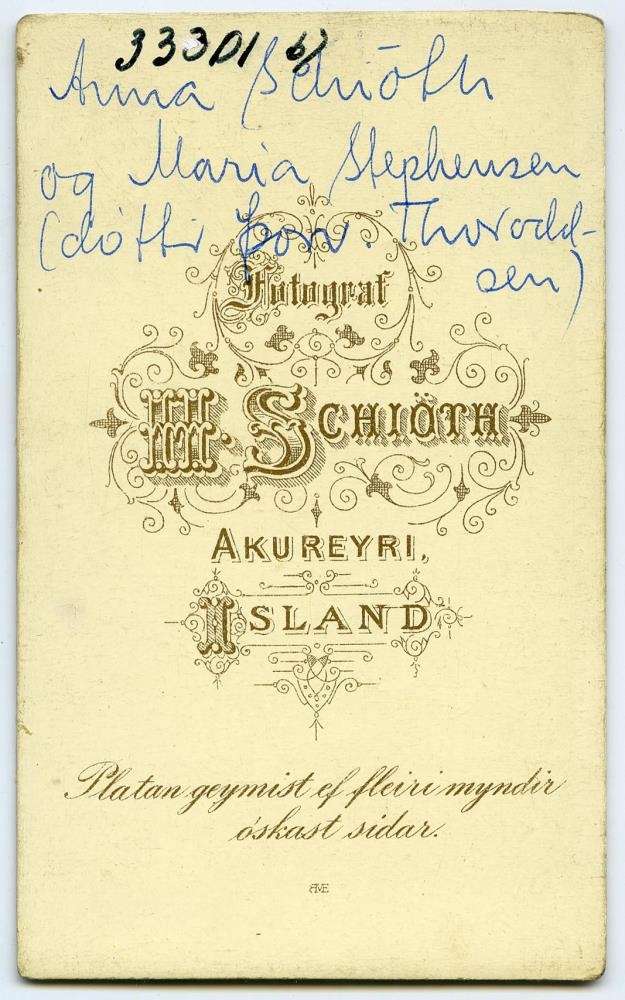 33301 b)
Anna Schiöth
og Maria Stephensen
(dóttir Þorv. Thorodd-
sen)
Fotograf
H. SCHIÖTH
AKUREYRI,
ISLAND
Platan geymist ef fleiri myndir
óskast sidar.